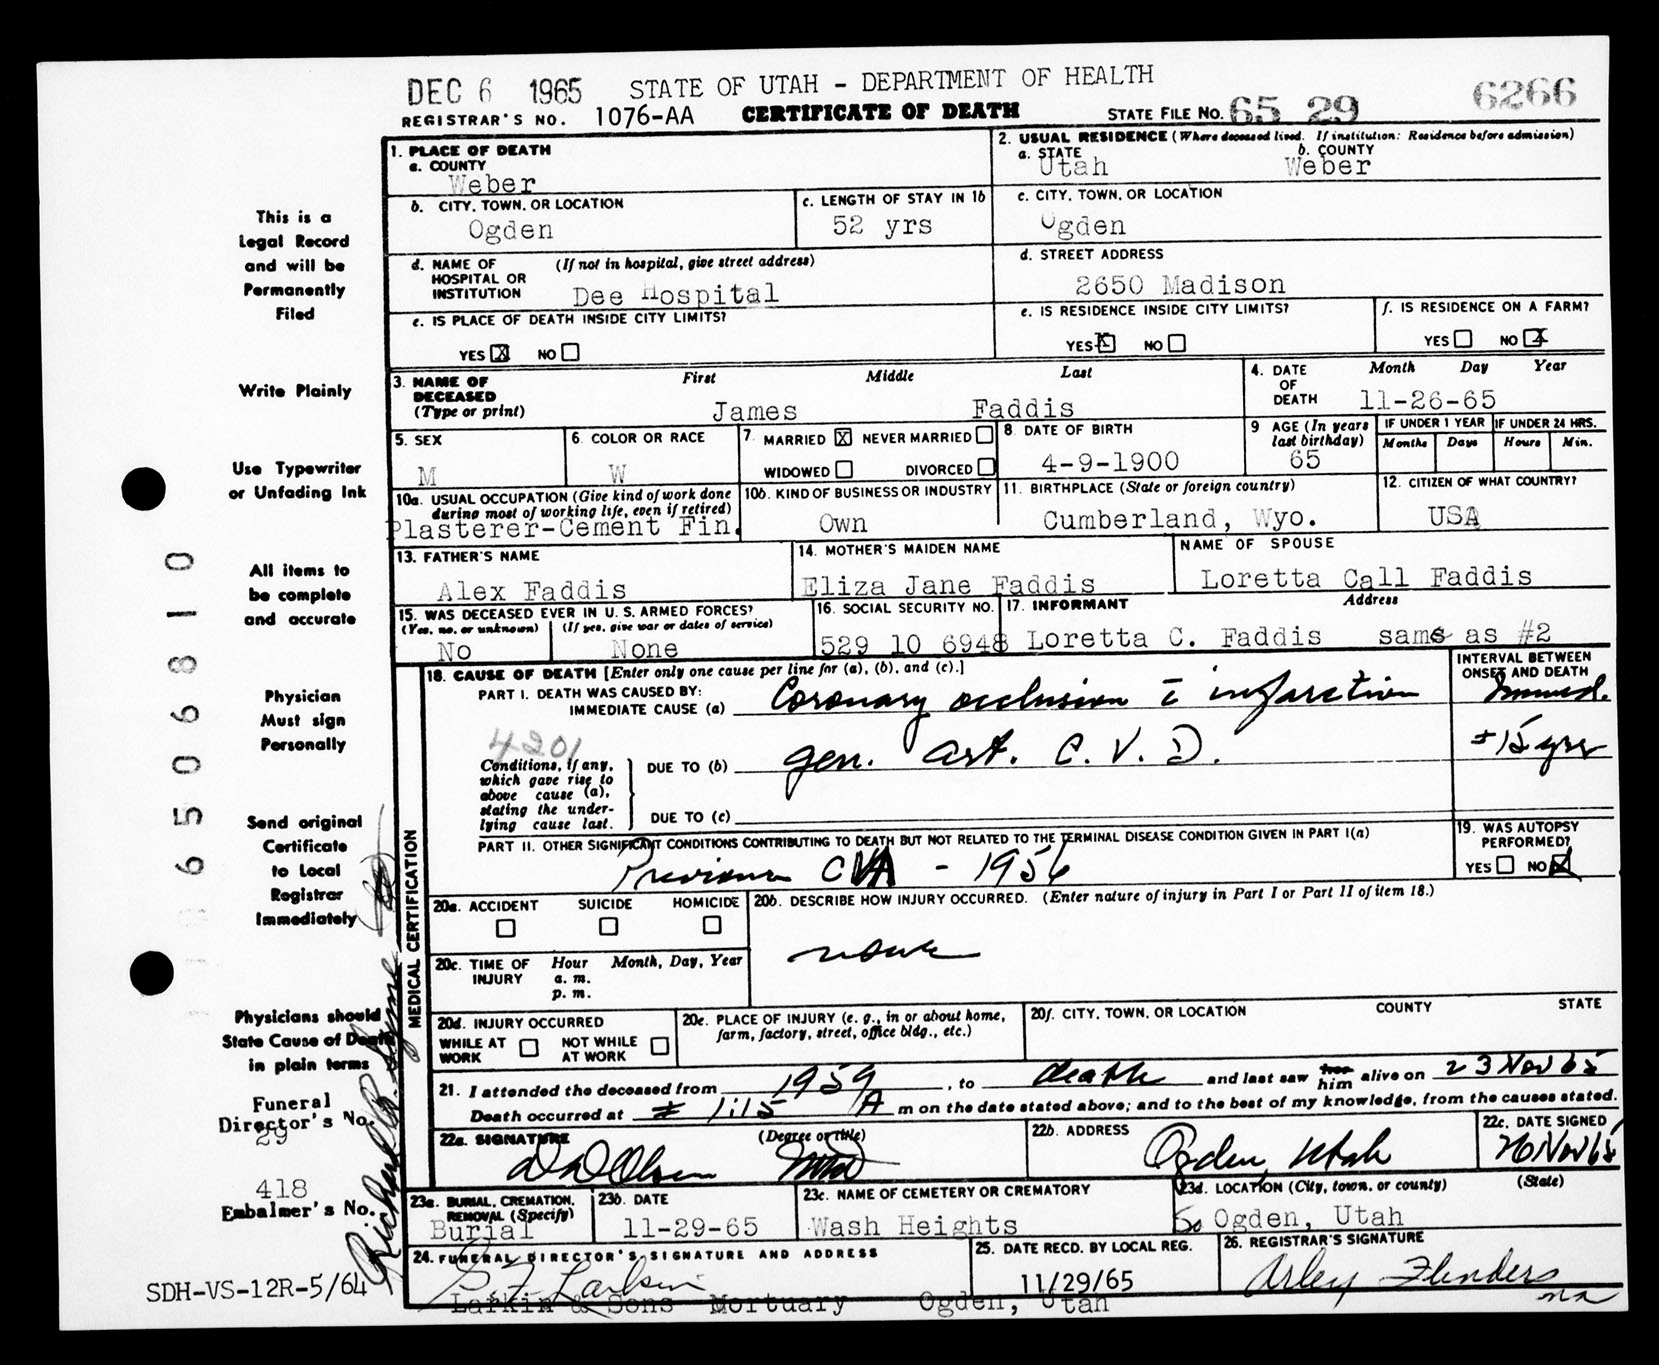 DEC 6 1965 STATE OF UTAH - DEPARTMENT OF HEALTH 6266
REGISTRAR'S NO. 1076-AA CERTIFICATE OF DEATH STATE FILE NO. 65 29
1. PLACE OF DEATH
a. COUNTY
Weber
2. USUAL RESIDENCE (Where deceased lived. If institution: Residence before admission)
a. STATE b. COUNTY
Utah Weber
b. CITY, TOWN, OR LOCATION
Ogden
c. LENGTH OF STAY IN 1b
52 yrs
c. CITY, TOWN, OR LOCATION
Ogden
d. NAME OF (If not in hospital, give street address)
HOSPITAL OR
INSTITUTION Dee Hospital
d. STREET ADDRESS
2650 Madison
e. IS PLACE OF DEATH INSIDE CITY LIMITS?
YES X NO
e. IS RESIDENCE INSIDE CITY LIMITS?
YES X NO
f. IS RESIDENCE ON A FARM?
YES NO X
3. NAME OF First Middle Last
DECEASED
(Type or print) James Faddis
4. DATE Month Day Year
OF
DEATH 11-26-65
5. SEX
M
6. COLOR OR RACE
W
7. MARRIED X NEVER MARRIED
WIDOWED DIVORCED
8. DATE OF BIRTH
4-9-1900
9 AGE (In years
last birthday)
65
IF UNDER 1 YEAR IF UNDER 24 HRS.
Months Days Hours Min.
10a. USUAL OCCUPATION (Give kind of work done
during most of working life, even if retired)
Plasterer-Cement Fin.
10b. KIND OF BUSINESS OR INDUSTRY
Own
11. BIRTHPLACE (State or foreign country)
Cumberland, Wyo.
12. CITIZEN OF WHAT COUNTRY?
USA
13. FATHER'S NAME
Alex Faddis
14. MOTHER'S MAIDEN NAME
Eliza Jane Faddis
NAME OF SPOUSE
Loretta Call Faddis
15. WAS DECEASED EVER IN U. S. ARMED FORCES?
(Yes, no, or unknown) (If yes, give war or dates of service)
No None
16. SOCIAL SECURITY NO.
529 10 6948
17. INFORMANT Address
Loretta C. Faddis same as #2
MEDICAL CERTIFICATION
18. CAUSE OF DEATH [Enter only one cause per line for (a), (b), and (c).]
INTERVAL BETWEEN
ONSET AND DEATH
PART I. DEATH WAS CAUSED BY:
IMMEDIATE CAUSE (a) Coronary occlusion c̄ infarction Immed.
4201
Conditions, if any,
which gave rise to
above cause (a),
stating the under-
lying cause last.
DUE TO (b) gen. art. C. V. D. ± 15 yrs
DUE TO (c)
PART II. OTHER SIGNIFICANT CONDITIONS CONTRIBUTING TO DEATH BUT NOT RELATED TO THE TERMINAL DISEASE CONDITION GIVEN IN PART I(a)
Previous CVA - 1956
19. WAS AUTOPSY
PERFORMED?
YES NO X
20a. ACCIDENT SUICIDE HOMICIDE
20b. DESCRIBE HOW INJURY OCCURRED. (Enter nature of injury in Part I or Part II of item 18.)
none
20c. TIME OF Hour Month, Day, Year
INJURY a. m.
p. m.
20d. INJURY OCCURRED
WHILE AT NOT WHILE
WORK AT WORK
20e. PLACE OF INJURY (e. g., in or about home,
farm, factory, street, office bldg., etc.)
20f. CITY, TOWN, OR LOCATION COUNTY STATE
21. I attended the deceased from 1959, to death and last saw him alive on 23 Nov 65
Death occurred at ± 1:15 A m on the date stated above; and to the best of my knowledge, from the causes stated.
22a. SIGNATURE (Degree or title)
Olsen
22b. ADDRESS
Ogden, Utah
22c. DATE SIGNED
26 Nov 65
23a. BURIAL, CREMATION,
REMOVAL (Specify)
Burial
23b. DATE
11-29-65
23c. NAME OF CEMETERY OR CREMATORY
Wash Heights
23d. LOCATION (City, town, or county) (State)
So Ogden, Utah
24. FUNERAL DIRECTOR'S SIGNATURE AND ADDRESS
Larkin
Larkin & Sons Mortuary Ogden, Utah
25. DATE RECD. BY LOCAL REG.
11/29/65
26. REGISTRAR'S SIGNATURE
Arley Flinders
This is a
Legal Record
and will be
Permanently
Filed
Write Plainly
Use Typewriter
or Unfading Ink
All items to
be complete
and accurate
Physician
Must sign
Personally
Send original
Certificate
to Local
Registrar
Immediately
Physicians should
State Cause of Death
in plain terms
Funeral
Director's No.
29
418
Embalmer's No.
SDH-VS-12R-5/64
6506810